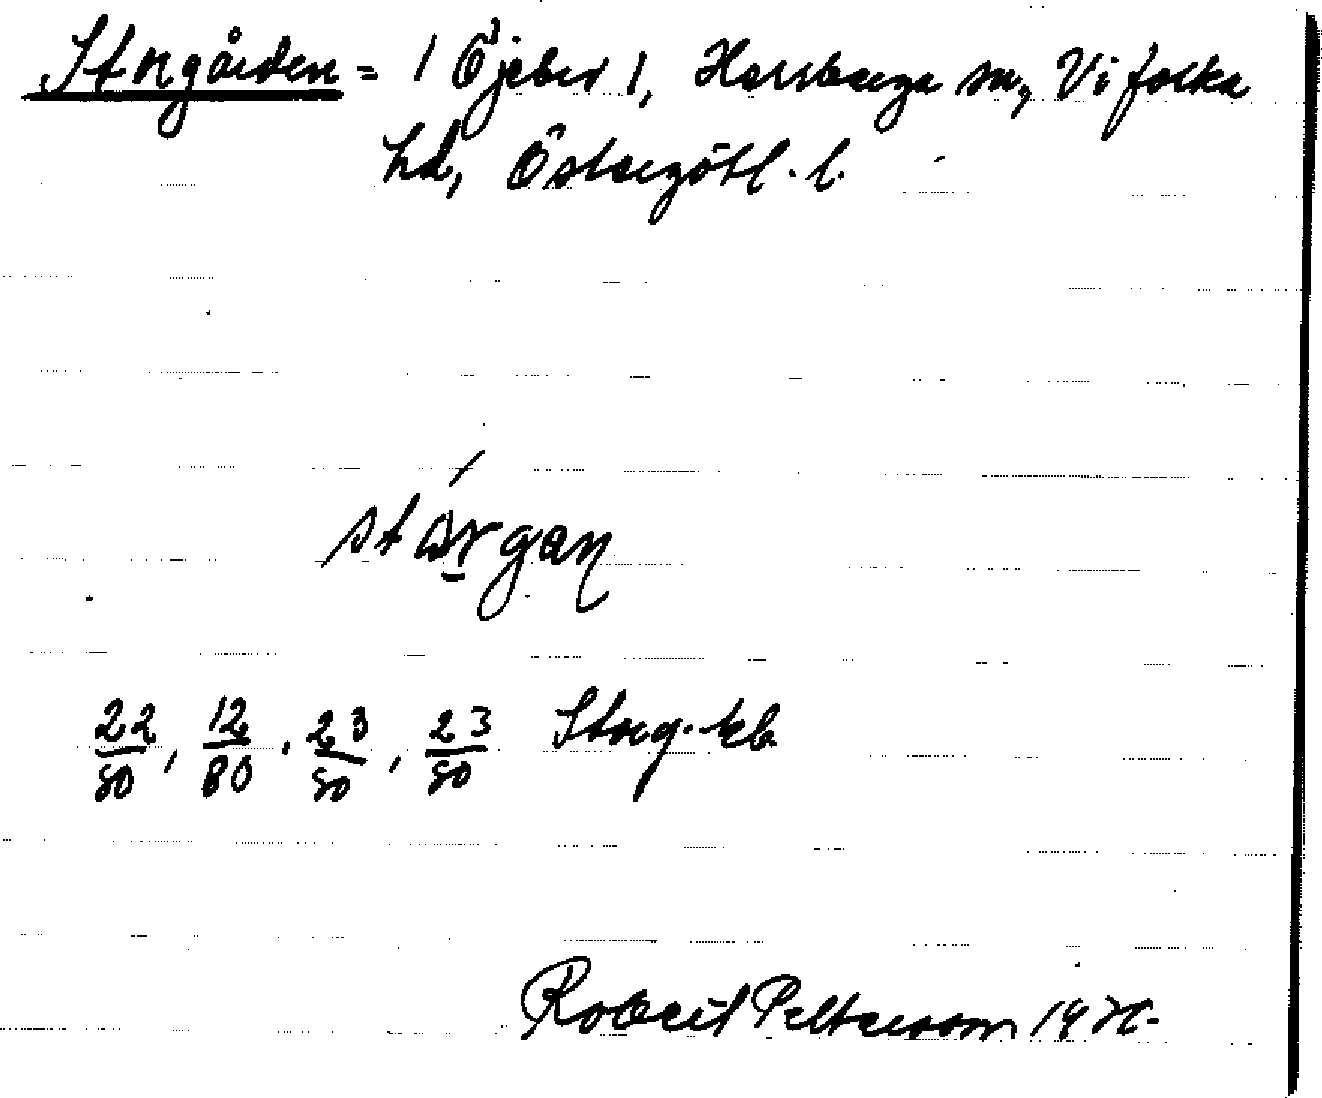 Storgården = 1 Öjebro 1, Harstorps sn, Vifolka
hd, Östergötl. l.
stórgan
22/80, 12/80, 23/80, 23/80 Storg. kb
Robert Pettersson 19